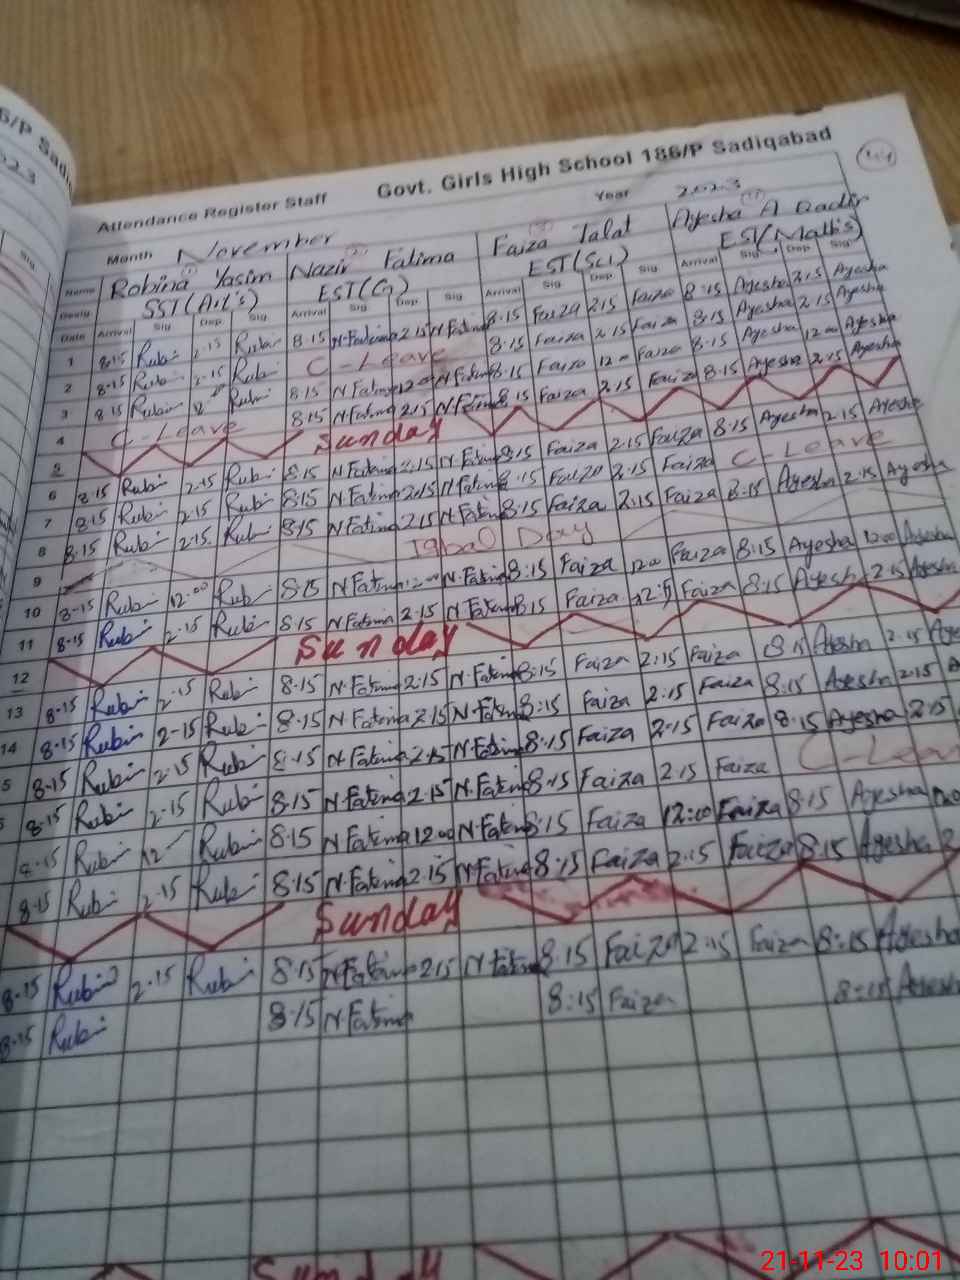 Attendance Register Staff Govt. Girls High School 186/P Sadiqabad
Month November Year 2023
Name Robina Yasim Nazir Fatima Faiza Talat Ayesha A Qadir
SST (Art's) EST (G) EST (Sci) EST (Math's)
Date Arrival Sig Dep Sig Arrival Sig Dep Sig Arrival Sig Dep Sig Arrival Sig Dep Sig
1 8:15 Rubi 2.15 Rubi 8.15 N.Fatima 2.15 N.Fatima 8.15 Faiza 2.15 Faiza 8.15 Ayesha 2.15 Ayesha
2 8.15 Rubi 2.15 Rubi C-Leave 8.15 Faiza 2.15 Faiza 8.15 Ayesha 2.15 Ayesha
3 8.15 Rubi 12 Rubi 8.15 N.Fatima 12.00 N.Fatima 8.15 Faiza 12.00 Faiza 8.15 Ayesha 12.00 Ayesha
4 C-Leave 8.15 N.Fatima 2.15 N.Fatima 8.15 Faiza 2.15 Faiza 8.15 Ayesha 2.15 Ayesha
5 Sunday
6 8.15 Rubi 2.15 Rubi 8.15 N.Fatima 2.15 N.Fatima 8.15 Faiza 2.15 Faiza 8.15 Ayesha 2.15 Ayesha
7 8.15 Rubi 2.15 Rubi 8.15 N.Fatima 2.15 N.Fatima 8.15 Faiza 2.15 Faiza C-Leave
8 8.15 Rubi 2.15 Rubi 8.15 N.Fatima 2.15 N.Fatima 8.15 Faiza 2.15 Faiza 8.15 Ayesha 2.15 Ayesha
9 Iqbal Day
10 8.15 Rubi 12:00 Rubi 8.15 N.Fatima 12.00 N.Fatima 8:15 Faiza 12.00 Faiza 8:15 Ayesha 12.00 Ayesha
11 8.15 Rubi 2.15 Rubi 8.15 N.Fatima 2.15 N.Fatima 8.15 Faiza Faiza 8.15 Ayesha 2.15 Ayesha
12 Sunday
13 8.15 Rubi 2.15 Rubi 8.15 N.Fatima 2.15 N.Fatima 8:15 Faiza 2:15 Faiza 8.15 Ayesha 2.15 Aye
14 8.15 Rubi 2.15 Rubi 8.15 N.Fatima 2.15 N.Fatima 8:15 Faiza 2.15 Faiza 8:15 Ayesha 2.15 A
5 8.15 Rubi 2.15 Rubi 8.15 N.Fatima 2.15 N.Fatima 8.15 Faiza 2.15 Faiza 8.15 Ayesha 2.15
8.15 Rubi 2.15 Rubi 8.15 N.Fatima 2.15 N.Fatima 8.15 Faiza 2.15 Faiza C-Leav
8.15 Rubi 12 Rubi 8.15 N.Fatima 12.00 N.Fatima 8.15 Faiza 12:00 Faiza 8.15 Ayesha
8.15 Rubi 2.15 Rubi 8.15 N.Fatima 2.15 N.Fatima 8:15 Faiza 2.15 Faiza 8.15 Ayesha 2
Sunday
8.15 Rubi 2.15 Rubi 8.15 N.Fatima 2.15 N.Fatima 8:15 Faiza 2:15 Faiza 8:15 Ayesha
8.15 Rubi 8.15 N.Fatima 8:15 Faiza 8:15 Ayesh
Sunday
21-11-23 10:01